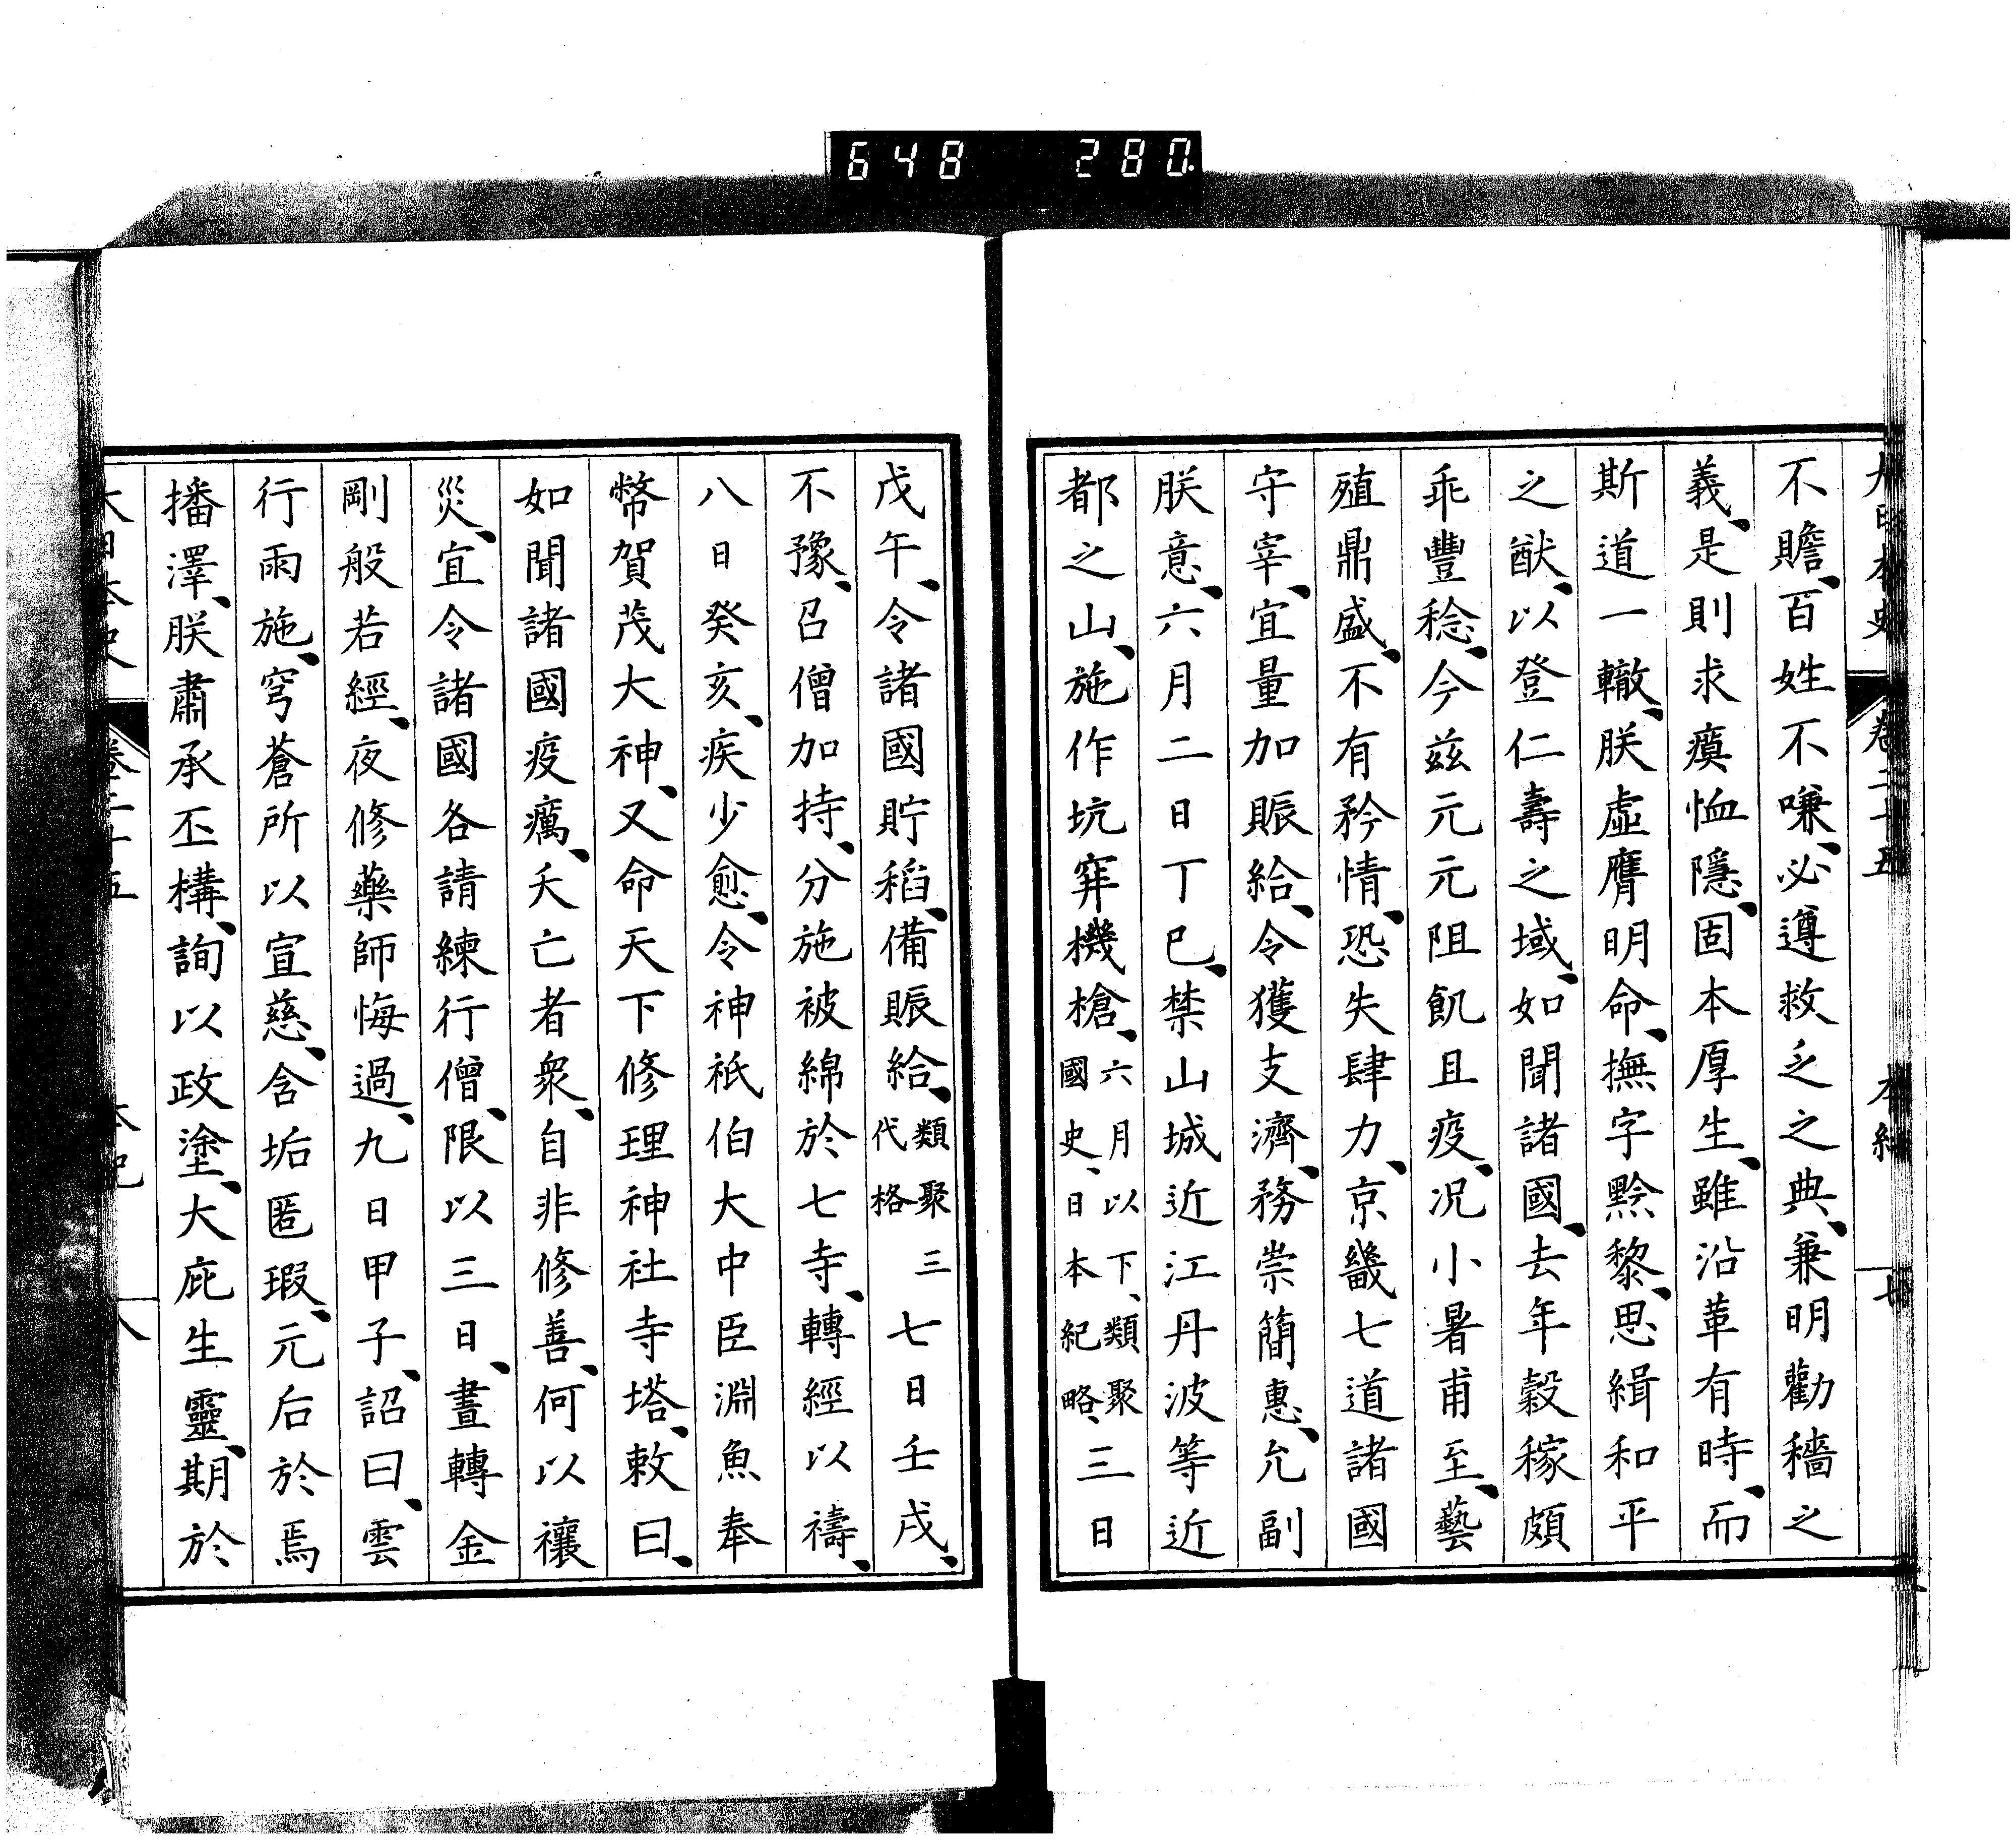 648 280
大日本史 卷二十五 本紀 七
不贍、百姓不嗛、必遵救乏之典、兼明勸穡之
義、是則求瘼恤隱、固本厚生、雖沿革有時、而
斯道一轍、朕虛膺明命、撫字黔黎、思緝和平
之猷、以登仁壽之域、如聞諸國、去年穀稼頗
乖豐稔、今茲元元阻飢且疫、况小暑甫至、藝
殖鼎盛、不有矜情、恐失肆力、京畿七道諸國
守宰、宜量加賑給、令獲支濟、務崇簡惠、允副
朕意、六月二日丁巳、禁山城近江丹波等近
都之山、施作坑穽機槍、六月以下、類聚國史、日本紀略、三日
戊午、令諸國貯稻、備賑給、類聚三代格七日壬戌、
不豫、召僧加持、分施被綿於七寺、轉經以禱、
八日癸亥、疾少愈、令神祇伯大中臣淵魚奉
幣賀茂大神、又命天下修理神社寺塔、敕曰、
如聞諸國疫癘、夭亡者衆、自非修善、何以禳
災、宜令諸國各請練行僧、限以三日、晝轉金
剛般若經、夜修藥師悔過、九日甲子、詔曰、雲
行雨施、穹蒼所以宣慈、含垢匿瑕、元后於焉
播澤、朕肅承丕構、詢以政塗、大庇生靈、期於
大日本史 卷二十五 本紀 八